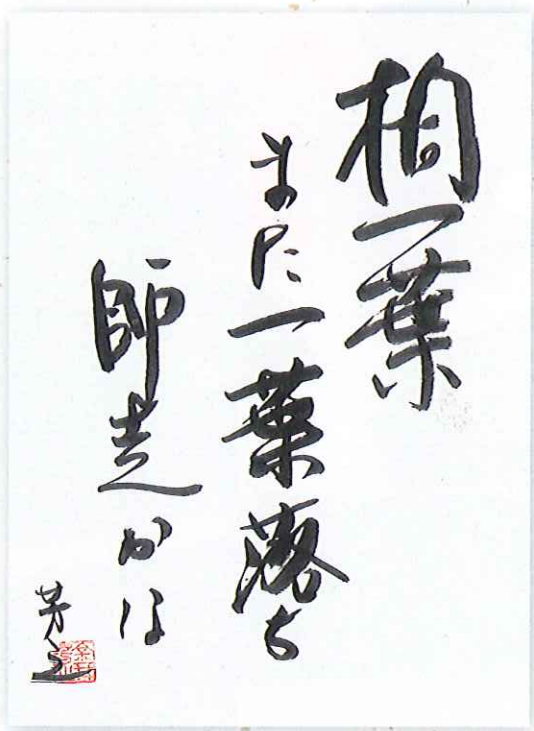 桐一葉
また一葉落ち
師走かな